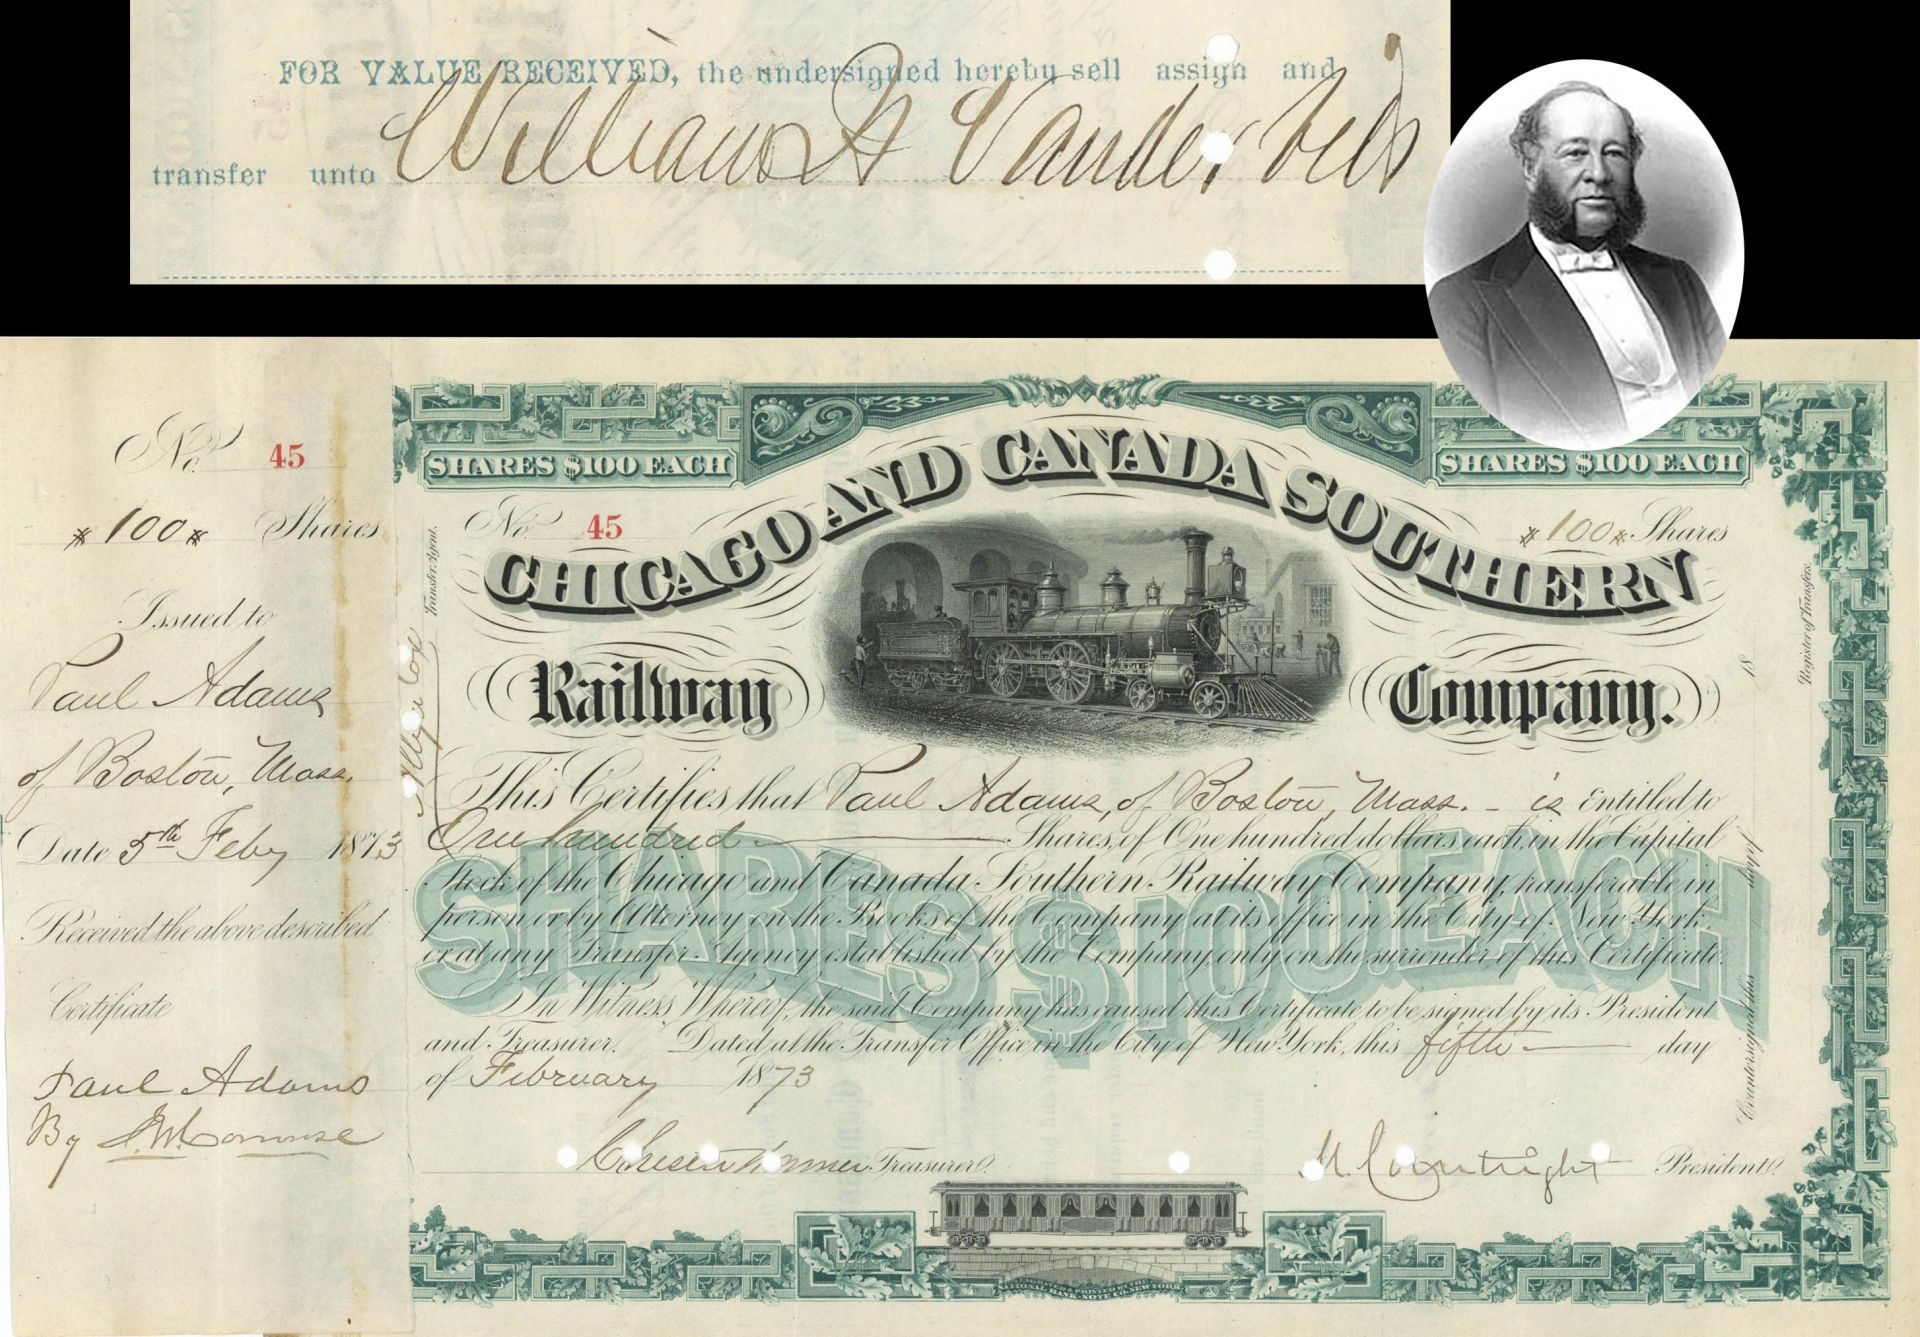 FOR VALUE RECEIVED, the undersigned hereby sell assign and
transfer unto William H Vanderbilt
No. 45
*100* Shares
Issued to
Paul Adams
of Boston, Mass.
Date 5th Feby 1873
Received the above described
Certificate
Paul Adams
By
SHARES $100 EACH
SHARES $100 EACH
No. 45
*100* Shares
CHICAGO AND CANADA SOUTHERN
Railway Company.
Transfer Agent.
This Certifies that Paul Adams, of Boston, Mass. - is Entitled to
One hundred Shares, of One hundred dollars each, in the Capital
Stock of the Chicago and Canada Southern Railway Company, transferable in
person or by Attorney on the Books of the Company at its office in the City of New York
or at any Transfer Agency established by the Company, only on the surrender of this Certificate.
SHARES $100. EACH
In Witness Whereof, the said Company has caused this Certificate to be signed by its President
and Treasurer. Dated at the Transfer Office in the City of New York, this fifth day
of February 1873
Treasurer.
M. Courtright President.
Countersigned this day of 18
Register of Transfers.
NATIONAL BANK-NOTE CO. NEW YORK